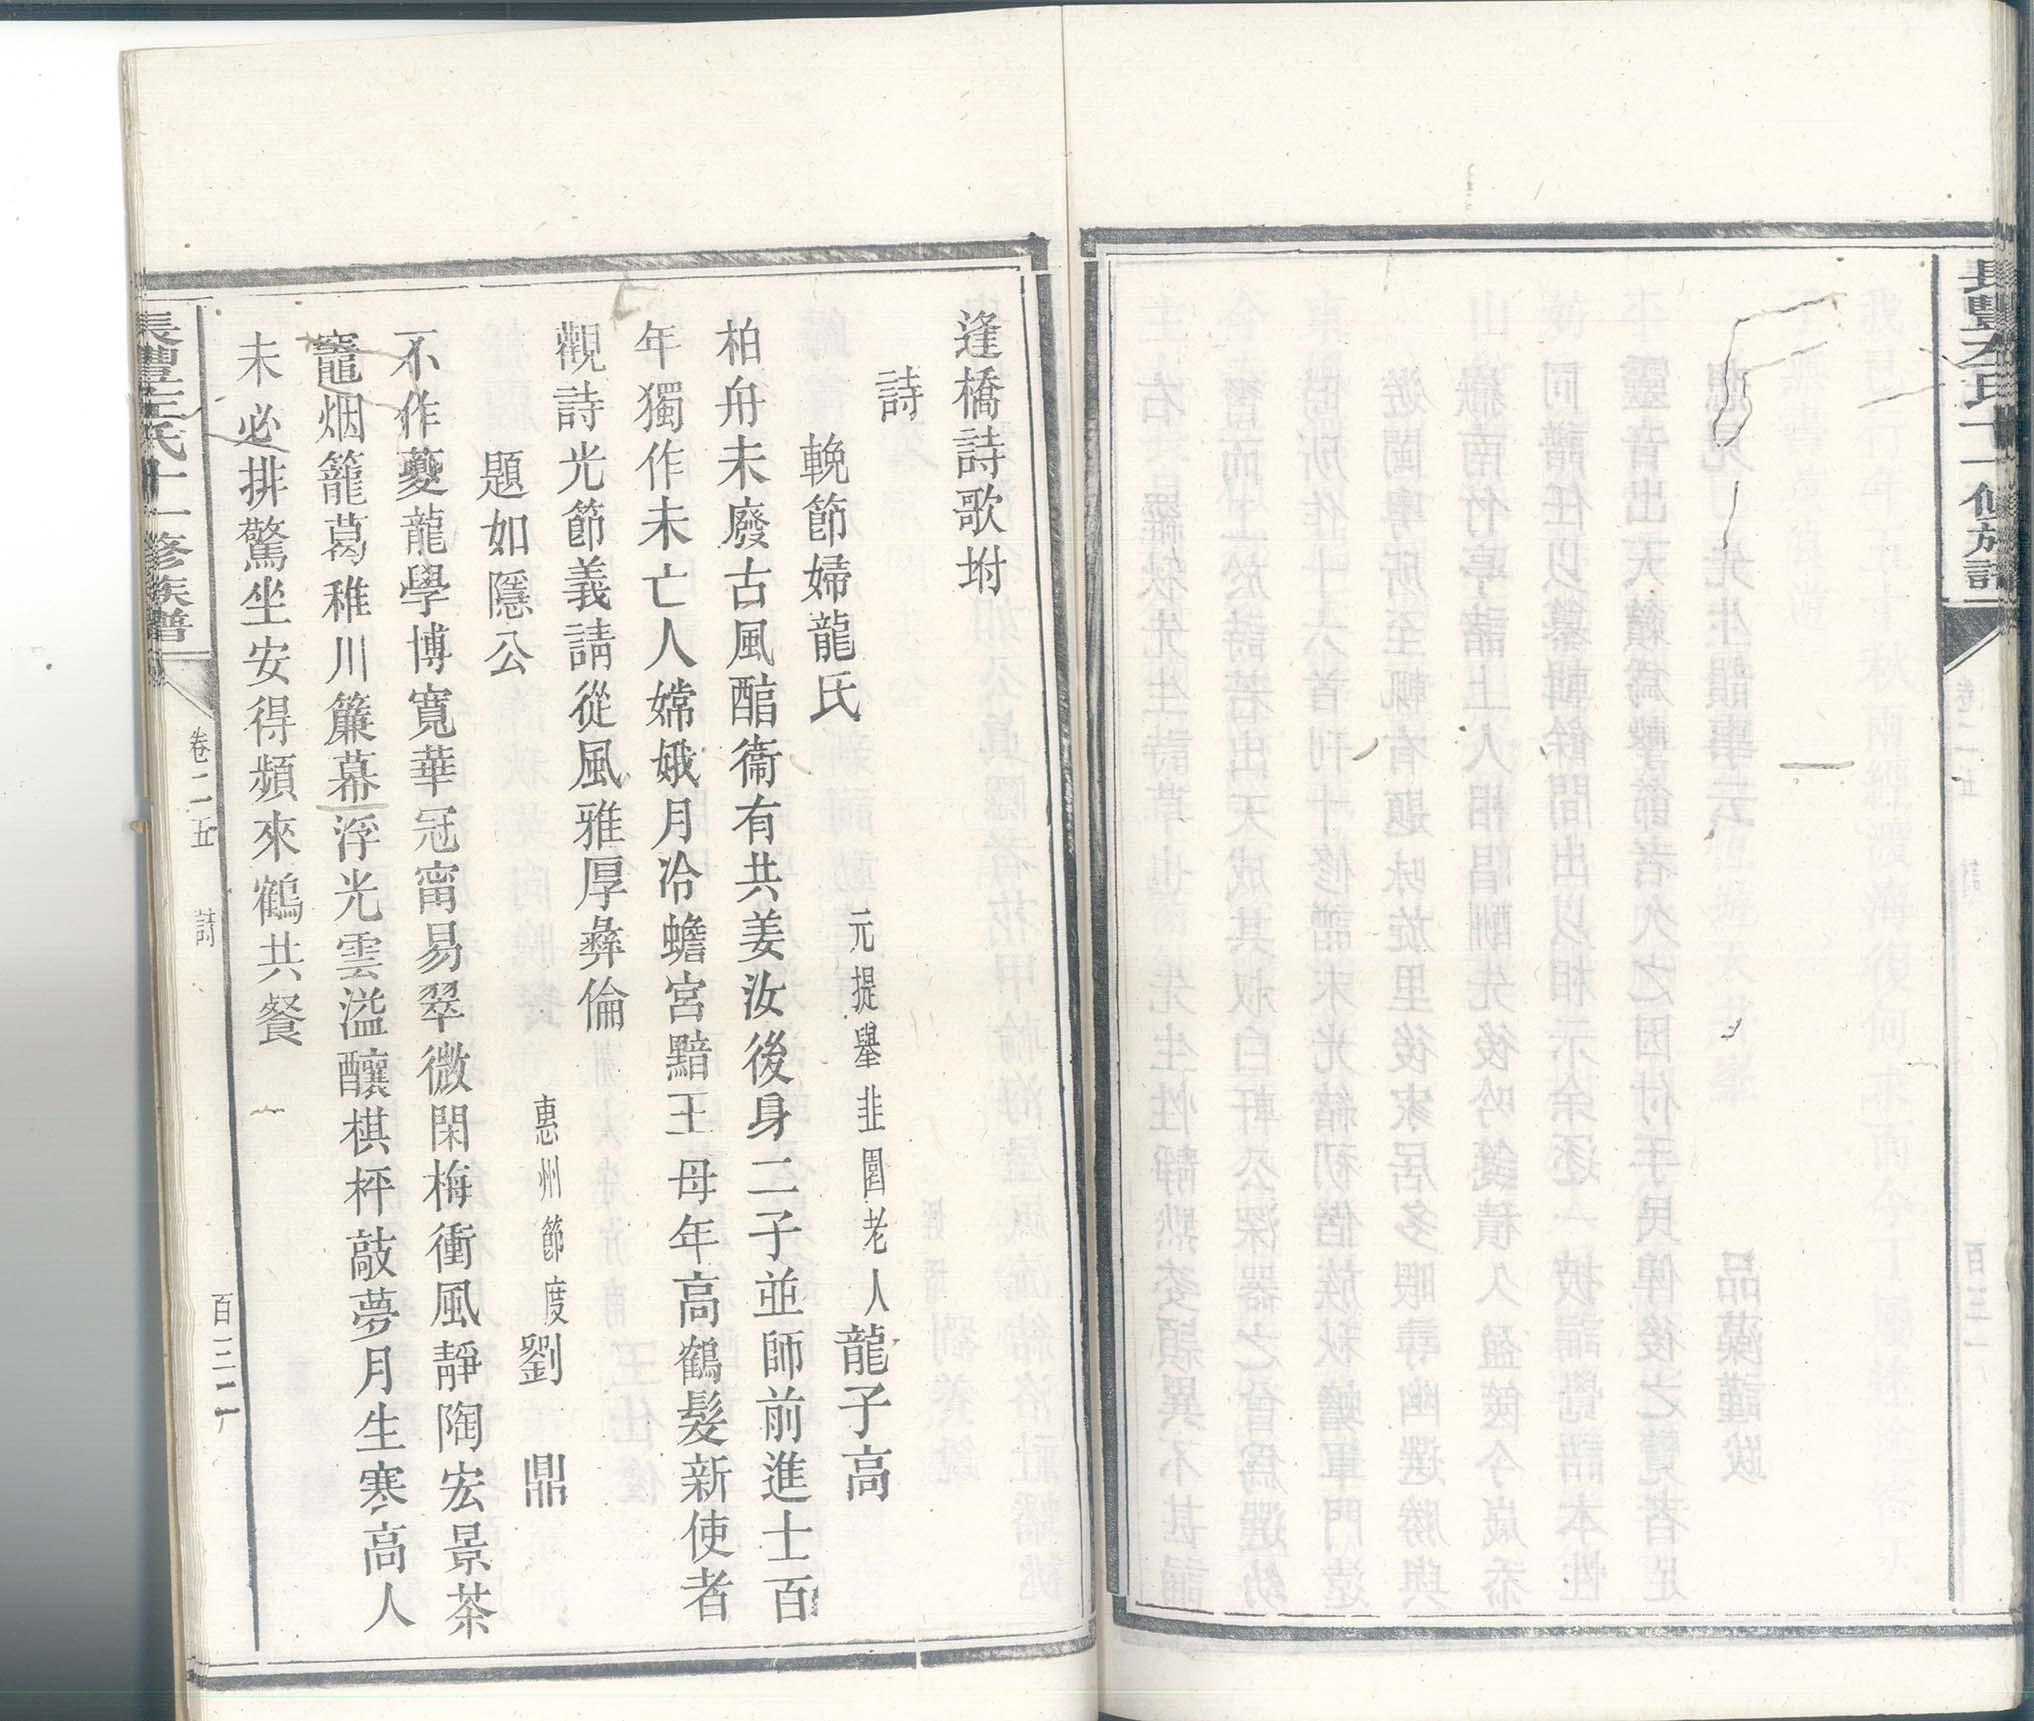 長豐左氏十一修族譜
逢橋詩歌坿
詩
輓節婦龍氏
元提舉韭園老人龍子高
柏舟未廢古風醅衞有共姜汝後身二子並師前進士百
年獨作未亡人嫦娥月冷蟾宮黯王母年高鶴髮新使者
觀詩光節義請從風雅厚彝倫
題如隱公
惠州節度劉鼎
不作夔龍學博寬華冠甯易翠微閑梅衝風靜陶宏景茶
竈烟籠葛稚川簾幕浮光雲溢釀棋枰敲夢月生寒高人
未必排驚坐安得頻來鶴共餐
長豐左氏十一修族譜
卷二五
詩
百三二